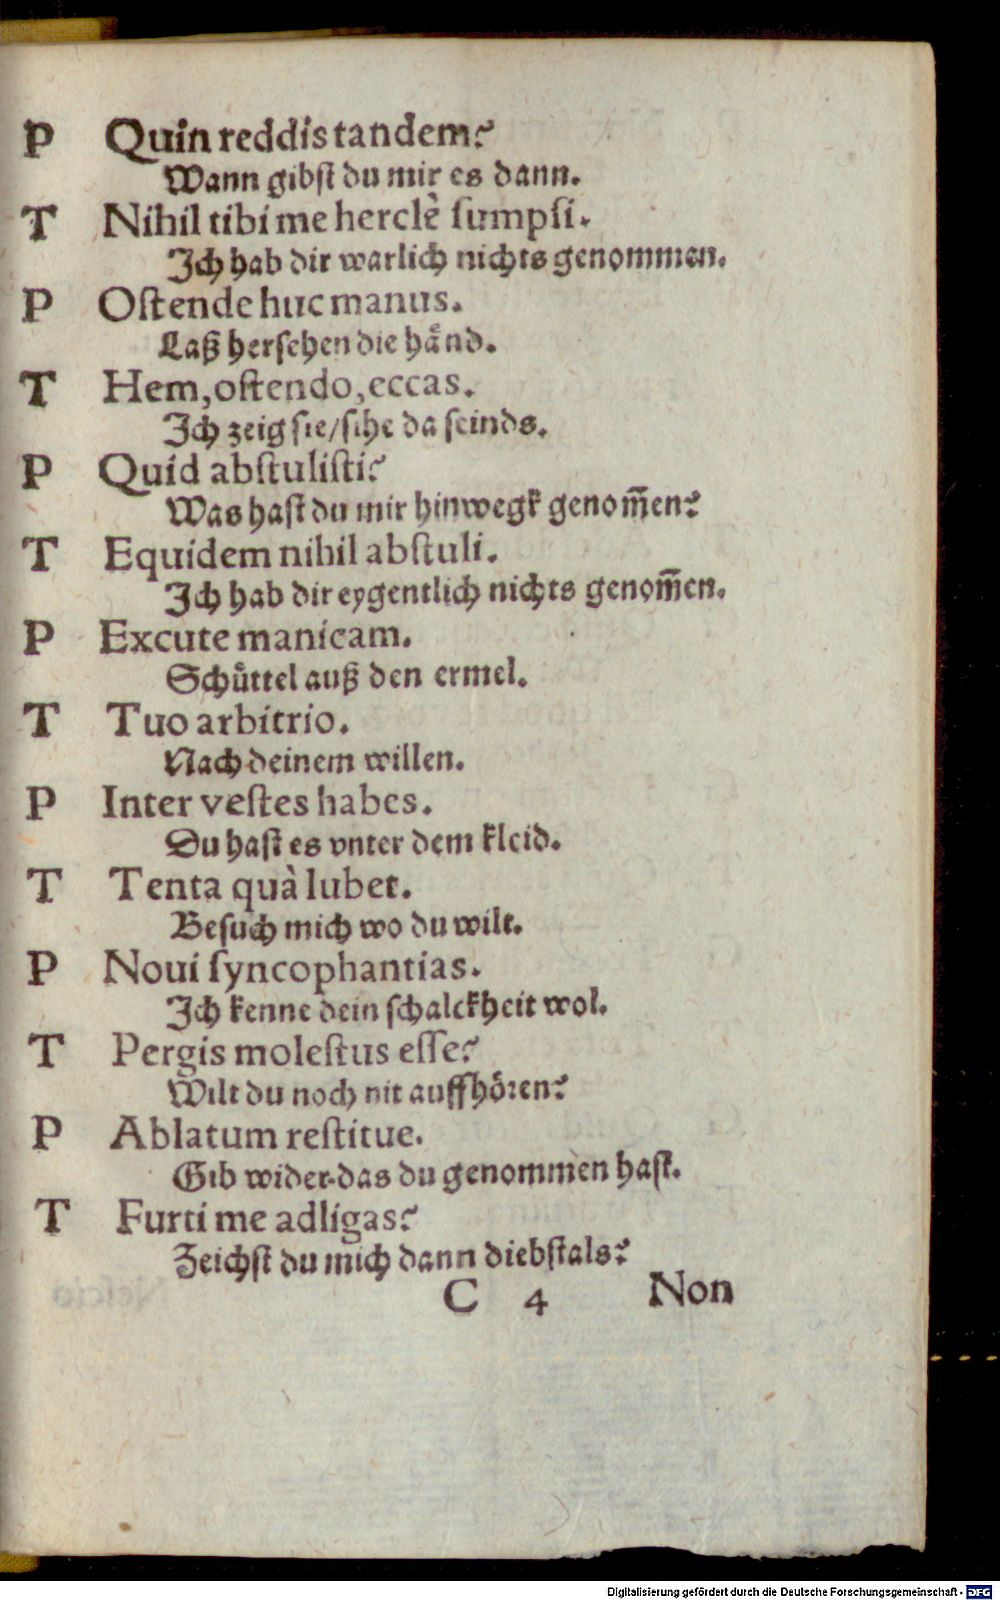 P Quin reddis tandem?
Wann gibſt du mir es dann.
T Nihil tibi me herclè ſumpſi.
Ich hab dir warlich nichts genommen.
P Oſtende huc manus.
Laß herſehen die haͤnd.
T Hem, oſtendo, eccas.
Ich zeig ſie/ſihe da ſeinds.
P Quid abſtuliſti?
Was haſt du mir hinwegk genom̃en?
T Equidem nihil abſtuli.
Ich hab dir eygentlich nichts genom̃en.
P Excute manicam.
Schuͤttel auß den ermel.
T Tuo arbitrio.
Nach deinem willen.
P Inter veſtes habes.
Du haſt es vnter dem kleid.
T Tenta quà lubet.
Beſuch mich wo du wilt.
P Noui ſyncophantias.
Ich kenne dein ſchalckheit wol.
T Pergis moleſtus eſſe?
Wilt du noch nit auffhoͤꝛen?
P Ablatum reſtitue.
Gib wider das du genommen haſt.
T Furti me adligas?
Zeichſt du mich dann diebſtals?
C 4 Non
Digitalisierung gefördert durch die Deutsche Forschungsgemeinschaft - DFG